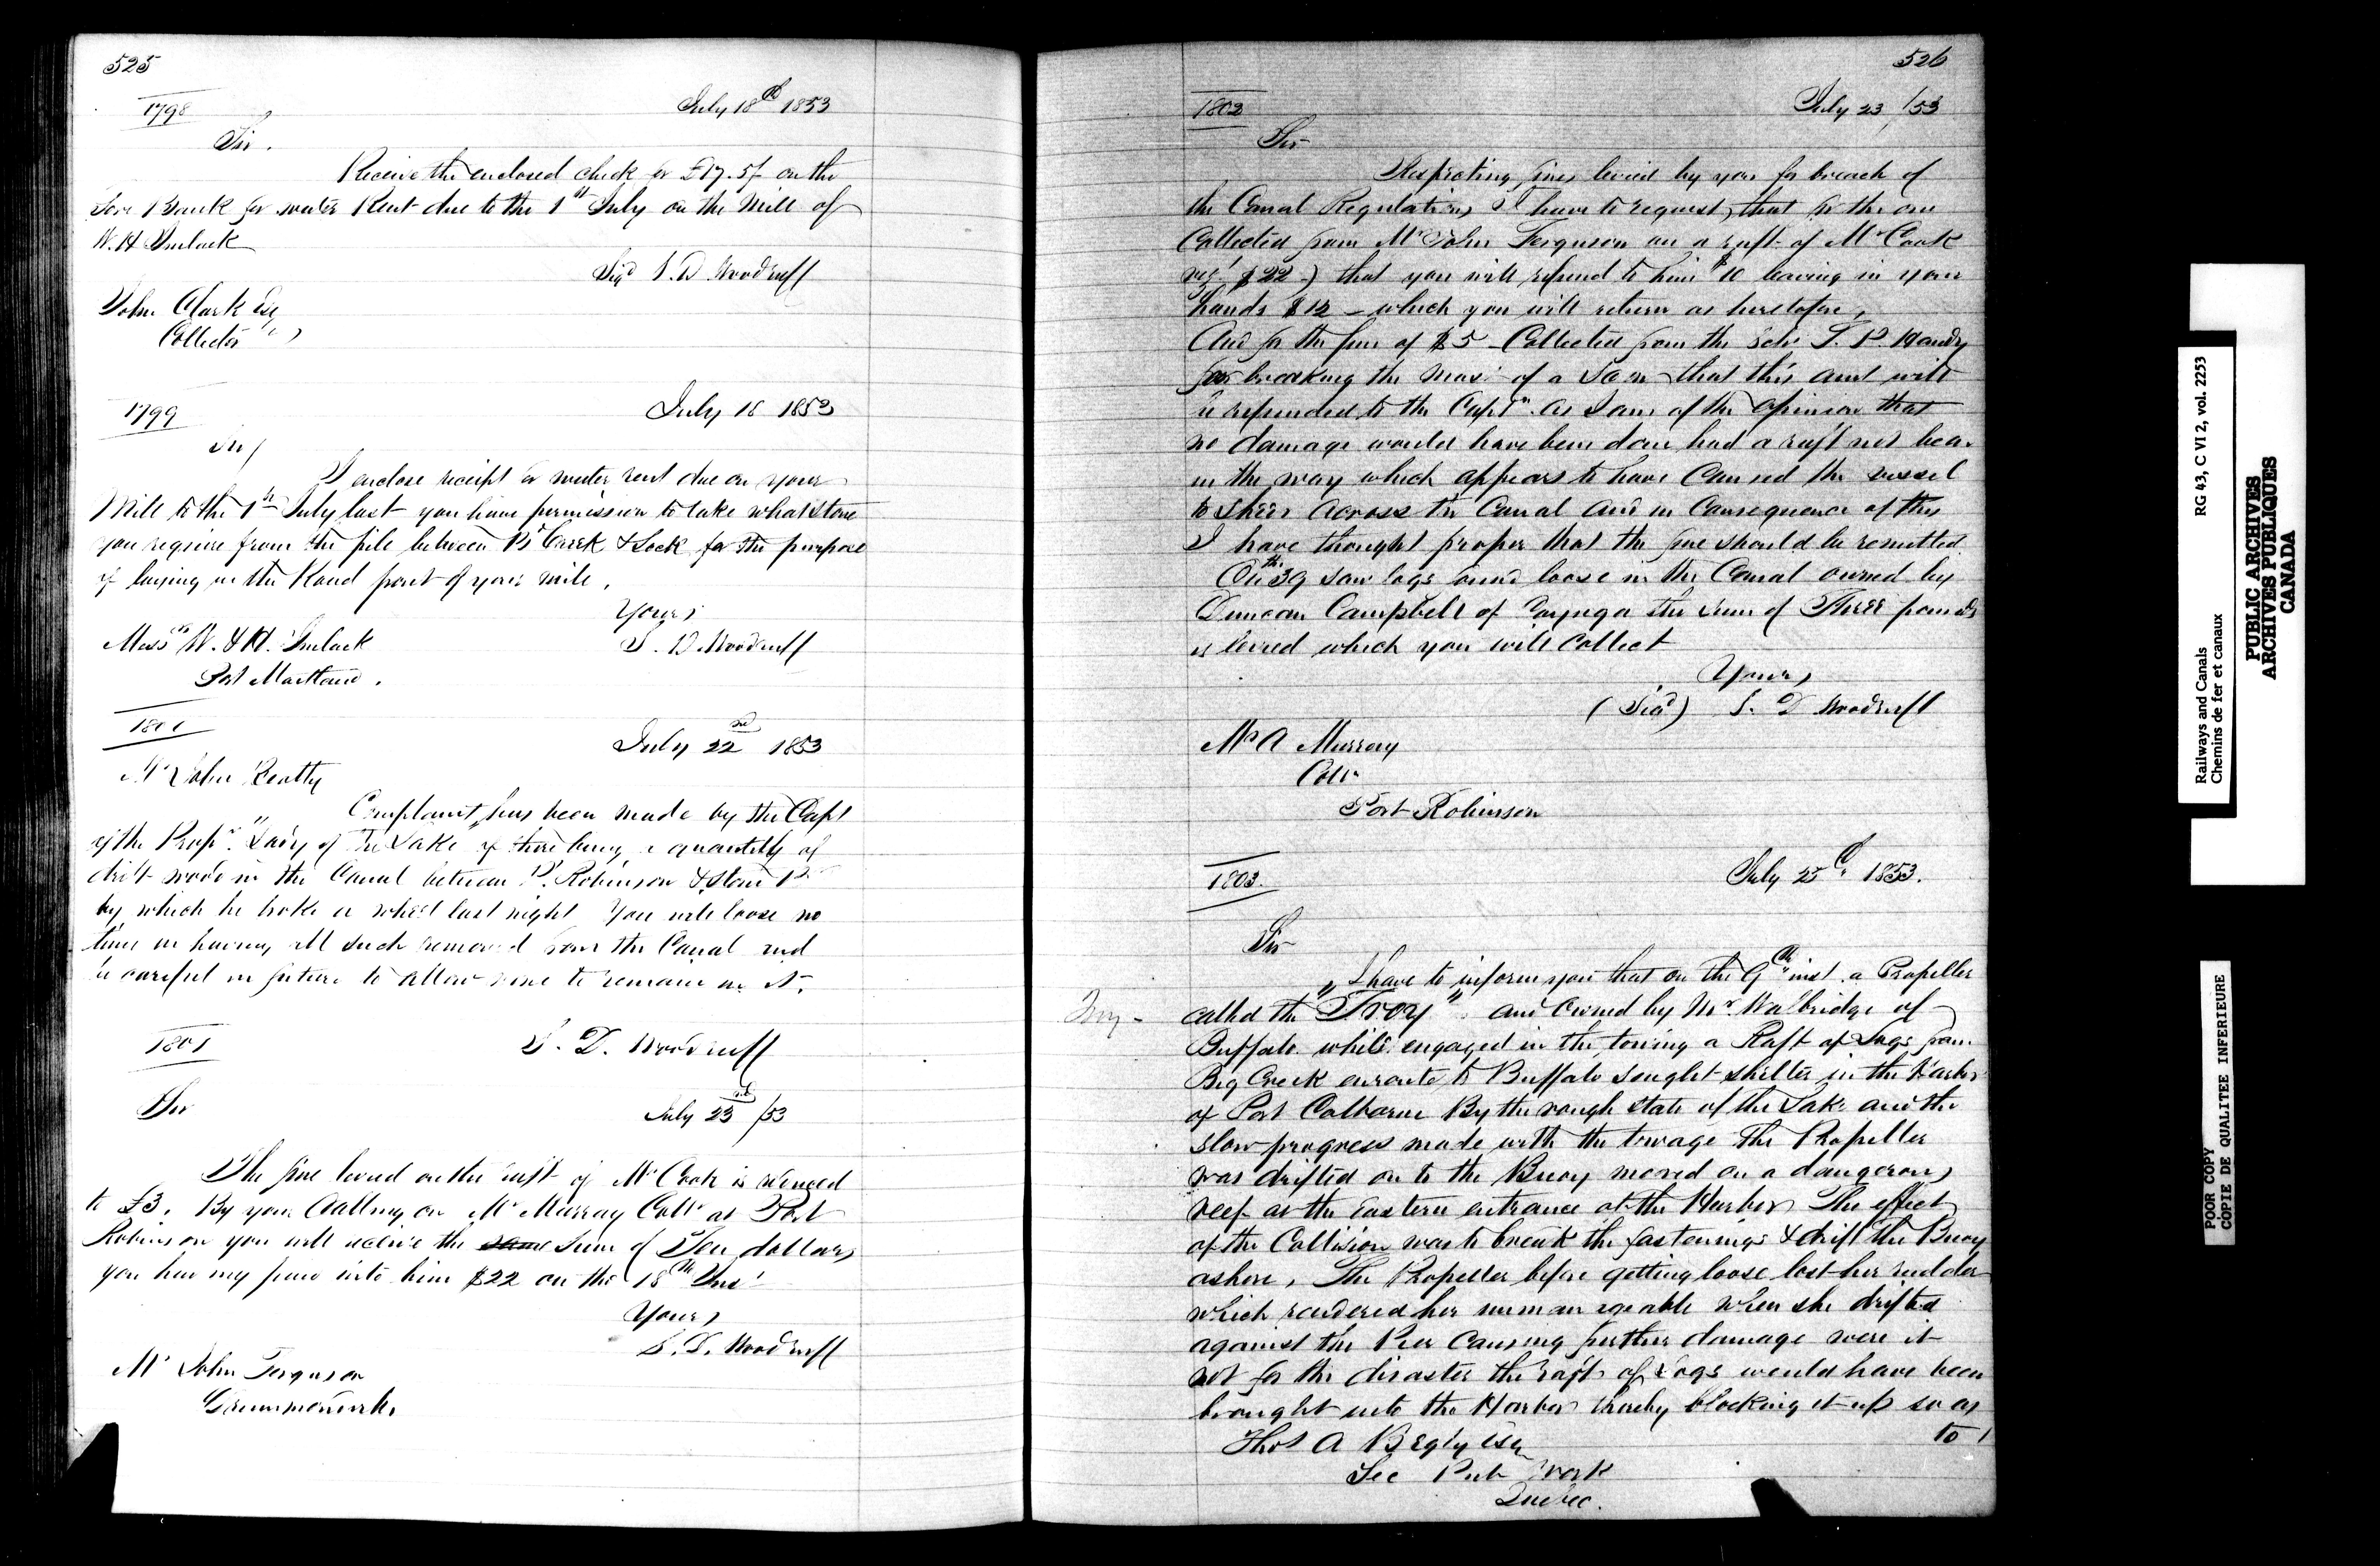 525
1798
July 18th 1853
Sir.
Receive the enclosed check for £17.5/ on the
Gore Bank for water Rent due to the 1st July on the Mill of
W. H Imlack
Sigd S. D Woodruff
John Clark Esq
Collector
1799
July 18 1853
Sir/
I enclose receipt for water rent due on your
Mill to the 1st July last you have permission to take what stone
you require from the pile between Bd Creek & Lock for the purpose
of laying in the Road front of your mill.
Yours,
Messrs W. & H. Imlack
S. D. Woodruff
Port Maitland.
1801
July 22nd 1853
Mr John Beatty
Complaint has been made by the Capt
of the Propr. "Lady of the Lake" of there being a quantity of
drift wood in the Canal between P. Robinson & Stone Be
by which he broke a wheel last night You will loose no
time in having all such removed from the Canal and
be careful in future to allow none to remain in it.
S. D. Woodruff
1801
Sir
July 23rd /53
The fine levied on the raft of Mr Cook is reduced
to £3. By your Calling on Mr Murray Collr at Port
Robinson you will receive the same sum of Ten dollars
you having paid into him $22 on the 18th Inst
Yours,
S. D. Woodruff
Mr John Ferguson
Drummondville
526
1802
July 23 /53
Sir
Respecting fines levied by you for breach of
the Canal Regulations I have to request, that for the one
Collected from Mr John Ferguson on a raft of Mr Cook
viz: $22-) that you will refund to him $10 leaving in your
hands $12 - which you will return as heretofore,
And for the fine of $5 - Collected from the Schr T. P. Handy
for breaking the mast of a Scow that this amt will
be refunded to the Captn. as I am of the opinion that
no damage would have been done had a raft not been
in the way which appears to have caused the vessel
to sheer across the Canal and in Consequence of this
I have thought proper that the fine should be remitted.
On the 39 saw logs found loose in the Canal owned by
Duncan Campbell of Cayuga the sum of Three pounds
is levied which you will collect
Yours,
(Sigd) S. D Woodruff
Mr A Murray
Collr
Port Robinson
1803.
July 25th 1853.
Sir
I have to inform you that on the 9th inst. a Propeller
Troy -
called the "Troy" and owned by Mr. Walbridge of
Buffalo while engaged in the towing a Raft of Logs from
Big Creek enroute to Buffalo sought shelter in the Harbor
of Port Colborne By the rough state of the Lake and the
slow progress made with the towage The Propeller
was drifted on to the Buoy moored on a dangerous
reef at the Eastern entrance of the Harbor The effect
of the Collision was to break the fastenings & drift the Buoy
ashore, The Propeller before getting loose lost her rudder
which rendered her unmanageable when she drifted
against the Pier causing further damage were it
not for the disaster the raft of Logs would have been
brought into the Harbor thereby blocking it up so as
to
Thos A Begly Esq
Sec Pub Work
Quebec.
RG 43, C VI 2, vol. 2253
Railways and Canals
Chemins de fer et canaux
PUBLIC ARCHIVES
ARCHIVES PUBLIQUES
CANADA
POOR COPY
COPIE DE QUALITEE INFERIEURE